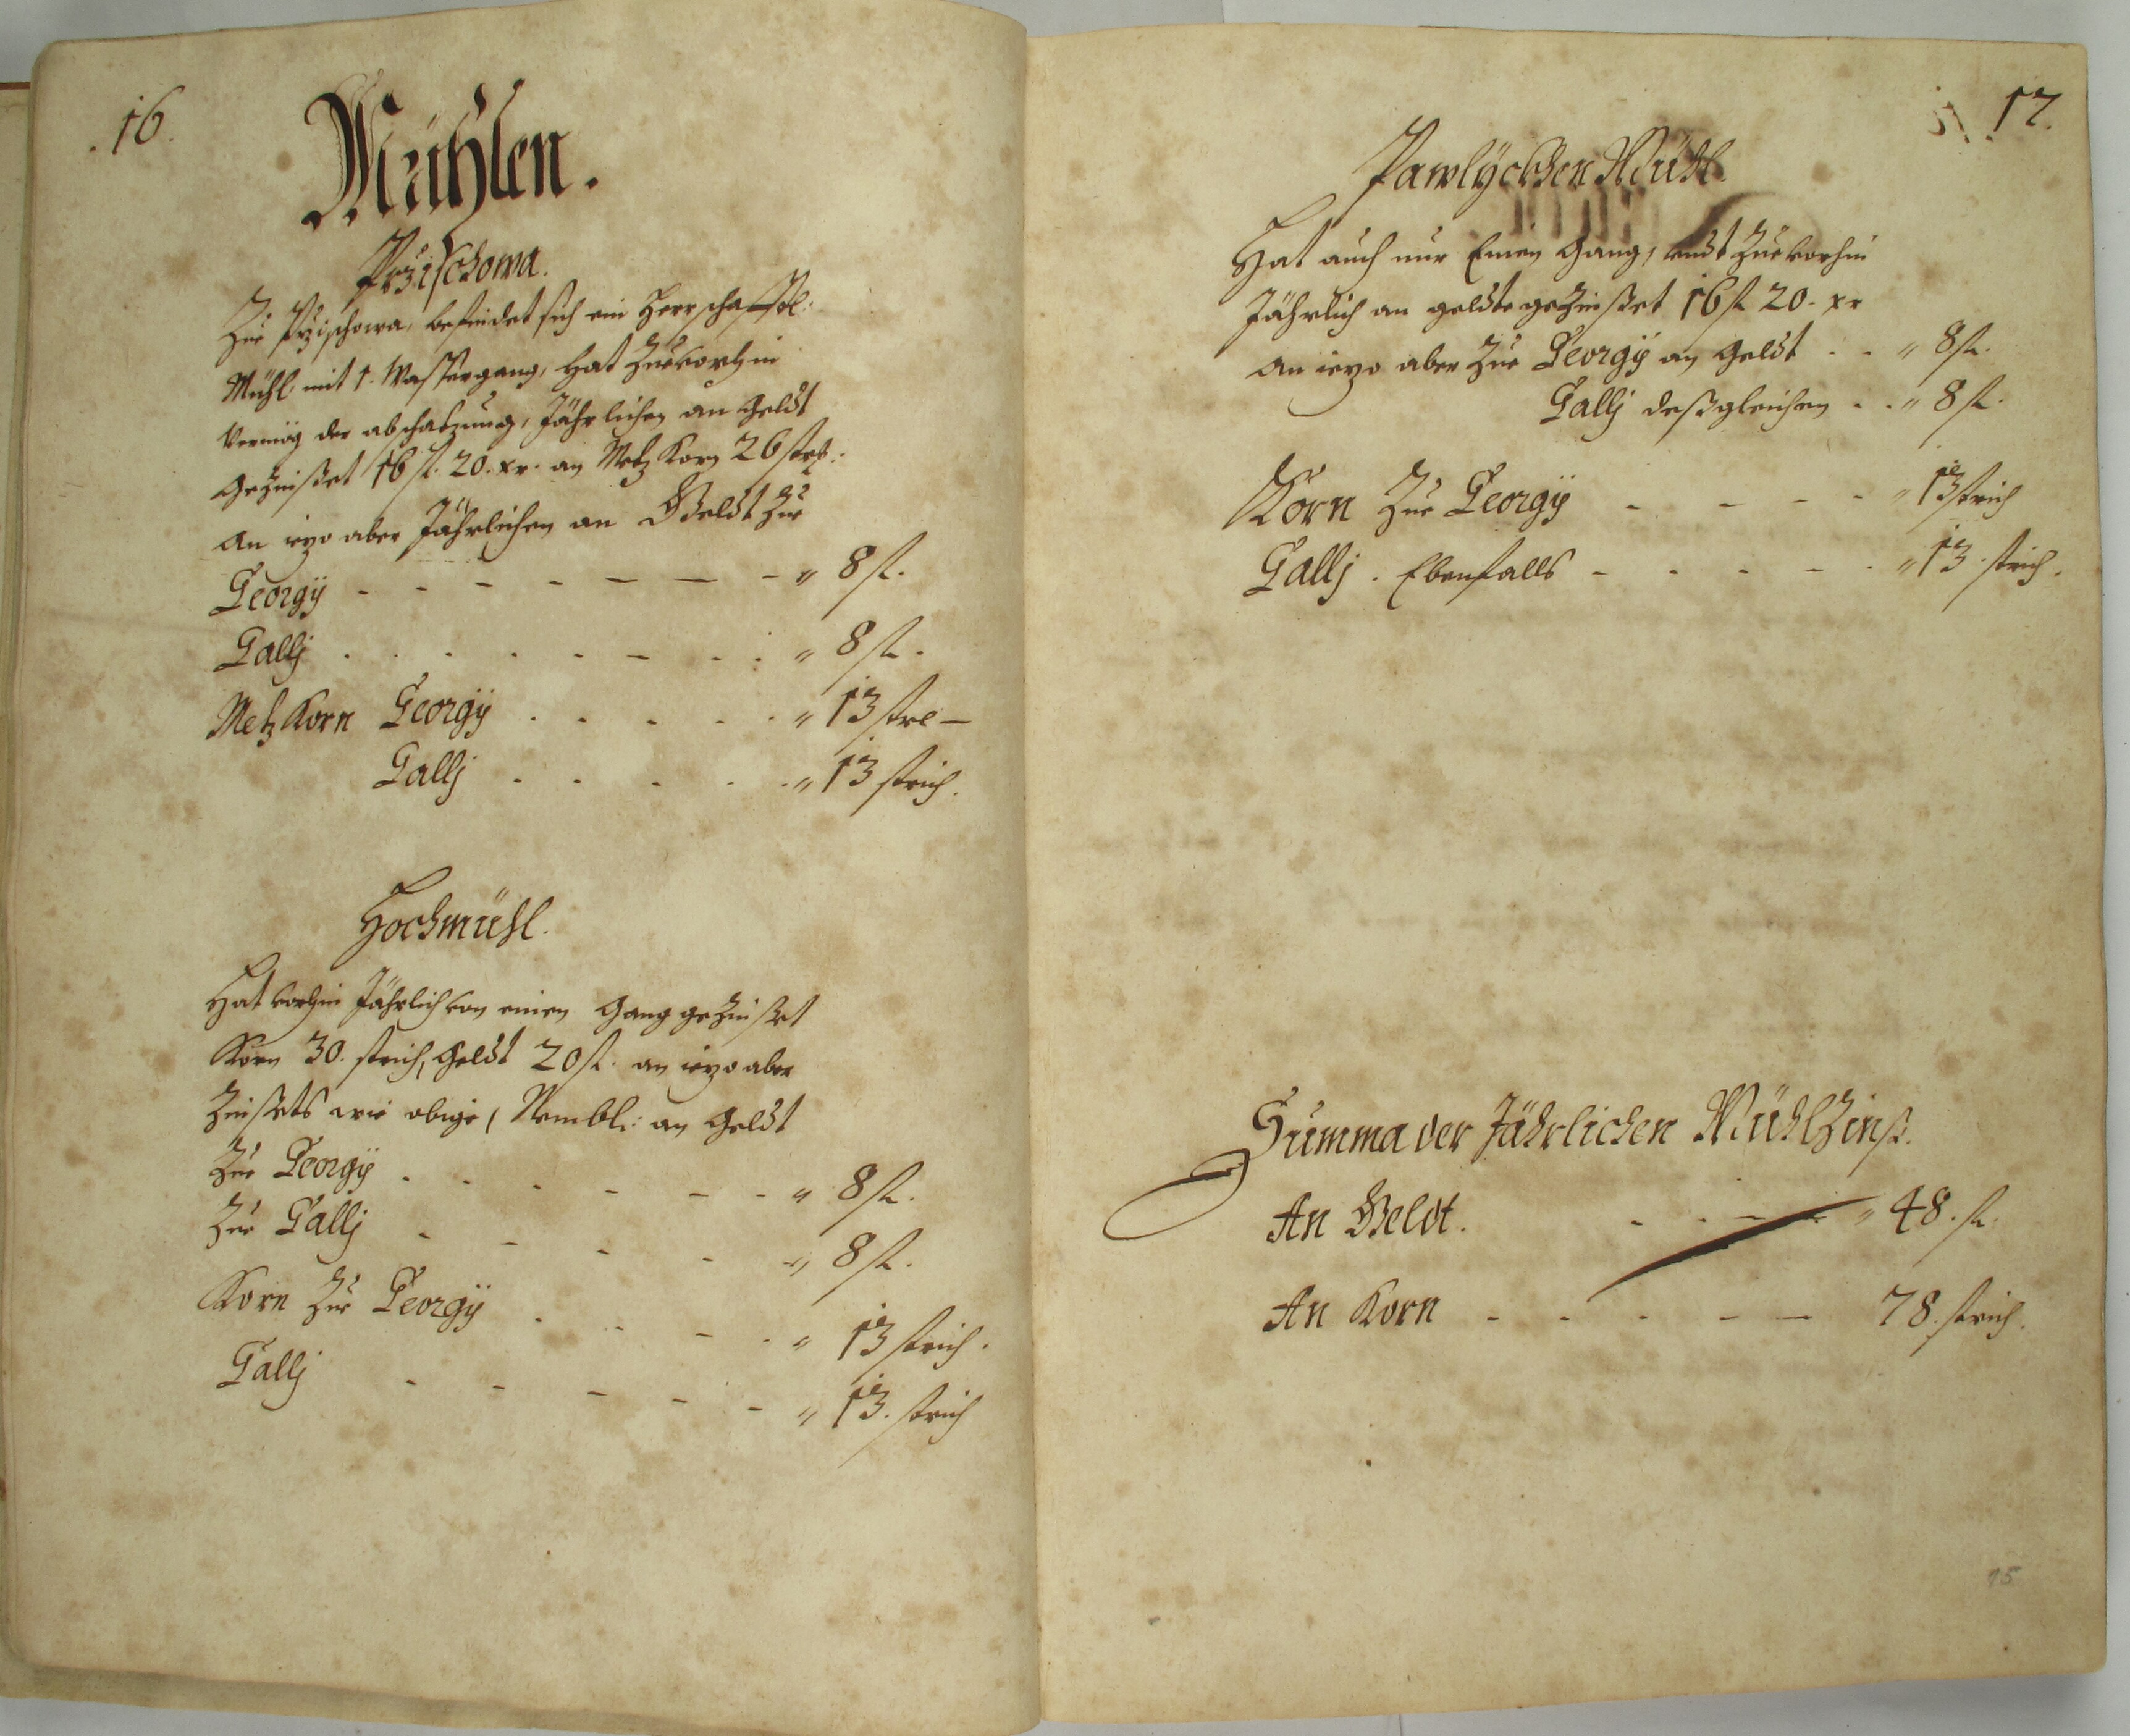 16.
Mühlen.
Przischowa.
Zue Przischowa, befindet sich ein Herrschafftl:
Mühl mit 1. Wassergang, hat zuevorhin
Vermög der abschatzung, Jährlichen an Geldt
Gezinßet 16 fl. 20. xr. an Metz Korn 26 strh:
An iezo aber Jährlichen an Geldt Zue
Georgÿ - - - - - - - " 8 fl.
Gallj . . . . - - . . " 8 fl.
Metz Korn Georgÿ . . . . . " 13 stre -
Gallj . . . . . " 13 strich.
Hochmühl.
Hat vorhin Jährlich von einem Gang gezinßet
Korn 30. strich, Geldt 20 fl. an iezo aber
Zinßets wie obige, Nembl: an Geldt
Zue Georgÿ . . . - - - " 8 fl.
Zue Gallj - - - - " 8 fl.
Korn Zue Georgÿ . . - . " 13 strich.
Gallj - - - - - " 13. strich
17.
Pawlÿckhen Mühl.
Hat auch nur Einen Gang, undt Zuevorhin
Jährlich an geldte gezinßet 16 fl 20. xr
An iezo aber Zue Georgÿ an Geldt . . " 8 fl.
Gallj deßgleichen . . " 8 fl.
Korn Zue Georgÿ - - - - " 13 strich
Gallj. Ebenfalls - - - - . " 13. strich.
Summa der Jährlichen Mühlzinß.
An Geldt. . . - - " 48. fl.
An Korn - - - - - 78. strich.
15